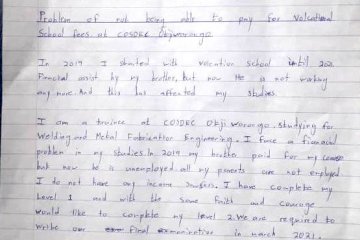 Problem of not being able to pay for Volcational
School fees at COSDEC Otjiwarongo.
In 2019 I started with vocation school until 2021
Financial assist by my brother, but now He is not working
any more. And this has affected my studies.
I am a trainee at COSDEC Otji Warongo. Studying for
Welding and Metal Fabrication Engineering. I face a financial
problem in my studies. In 2019 my brother paid for my
but now he is unemployed all my parents are not employed
I do not have any income. I have complete my
Level 1 and with the same Faith and courage
would like to complete my level 2. We are required to
write our final examination in march 2021.